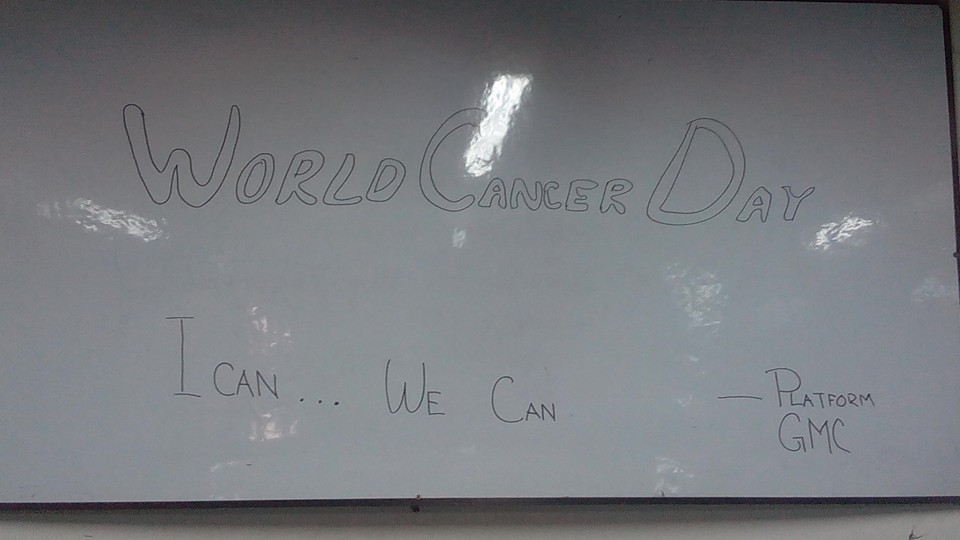 WORLD CANCER DAY
I CAN... WE CAN
— PLATFORM
GMC